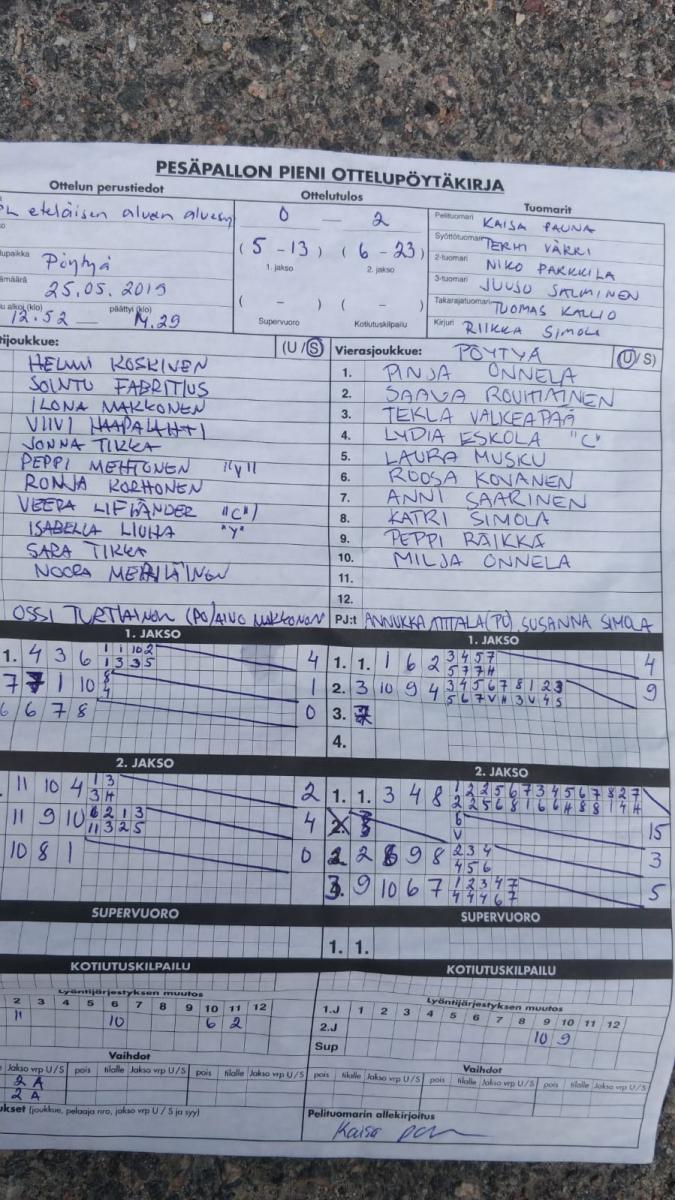 PESÄPALLON PIENI OTTELUPÖYTÄKIRJA
Ottelun perustiedot
Ottelutulos
Tuomarit
eteläisen alueen
0 — 2
Pelituomari KAISA PAUNA
Syöttötuomari TERHI VÄRRI
Pöytyä
(5 - 13) (6 - 23)
2-tuomari NIKO PARKKILA
1. jakso 2. jakso
3-tuomari JUUSO SALMINEN
25.05.2019
( - ) ( - )
Takarajatuomari TUOMAS KALLIO
päättyi (klo)
12.52 — 14.29
Supervuoro Kotiutuskilpailu
Kirjuri RIIKKA SIMOLA
tijoukkue: (U / S)
Vierasjoukkue: PÖYTYÄ (U / S)
HELMI KOSKINEN
SOINTU FABRITIUS
ILONA MAKKONEN
VIIVI HAAPALAHTI
JONNA TIKKA
PEPPI MEHTONEN "Y"
RONJA KORHONEN
VEERA LIFLÄNDER "C"
ISABELLA "Y"
SARA TIKKA
NOORA MERILÄINEN
OSSI TURTIAINEN (PJ) AINO MAKKONEN
1. PINJA ONNELA
2. SAAGA ROUHIAINEN
3. TEKLA VALKEAPÄÄ
4. LYDIA ESKOLA "C"
5. LAURA MUSKU
6. ROOSA KOVANEN
7. ANNI SAARINEN
8. KATRI SIMOLA
9. PEPPI RÄIKKÄ
10. MILJA ONNELA
11.
12.
PJ:t ANNUKKA (PJ), SUSANNA SIMOLA
1. JAKSO
1. 4 3 6 1 1 10 2 4
1 3 3 5
7 1 10 8 1
4
6 6 7 8 0
1. JAKSO
1. 1. 1 6 2 3 4 5 7 4
5 7 7 H
2. 3 10 9 4 3 4 5 6 7 8 1 2 3 9
5 6 7 V H 3 V 4 5
3. 7
4.
2. JAKSO
11 10 4 1 3 2
3 H
11 9 10 6 2 1 3 4
11 3 2 5
10 8 1 0
2. JAKSO
1. 1. 3 4 8 1 2 2 5 6 7 3 4 5 6 7 8 2 7
2 2 5 6 8 1 6 6 H 8 8 1 4 H
6 15
V
2 9 8 2 3 4 3
4 5 6
3. 9 10 6 7 1 2 3 4 7 5
4 4 4 6 7
SUPERVUORO
SUPERVUORO
1. 1.
KOTIUTUSKILPAILU
KOTIUTUSKILPAILU
Lyöntijärjestyksen muutos
2 3 4 5 6 7 8 9 10 11 12
11
10 6 2
Lyöntijärjestyksen muutos
1.J 1 2 3 4 5 6 7 8 9 10 11 12
2.J 10 9
Sup
Vaihdot
Jakso vrp U / S pois tilalle Jakso vrp U / S pois tilalle Jakso vrp U / S
2 A
2 A
Vaihdot
pois tilalle Jakso vrp U / S pois tilalle Jakso vrp U / S pois tilalle Jakso vrp U / S
ukset (joukkue, pelaaja nro, jakso vrp U / S ja syy)
Pelituomarin allekirjoitus
Kaisa